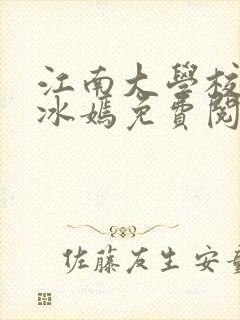 江南大學校
冰嫣免費閱
佐藤友生 安